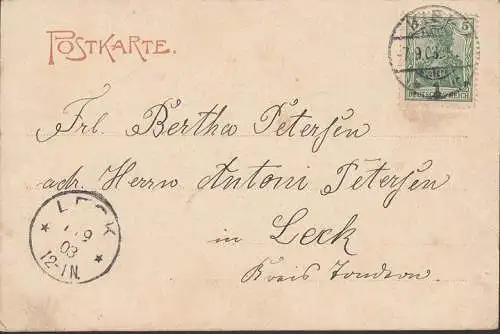 POSTKARTE.
5
DEUTSCHES REICH
Frl. Bertha Petersen
adr. Herrn Antoni Petersen
in Leck
Kreis Tondern.
LECK
9
03
12-1N.